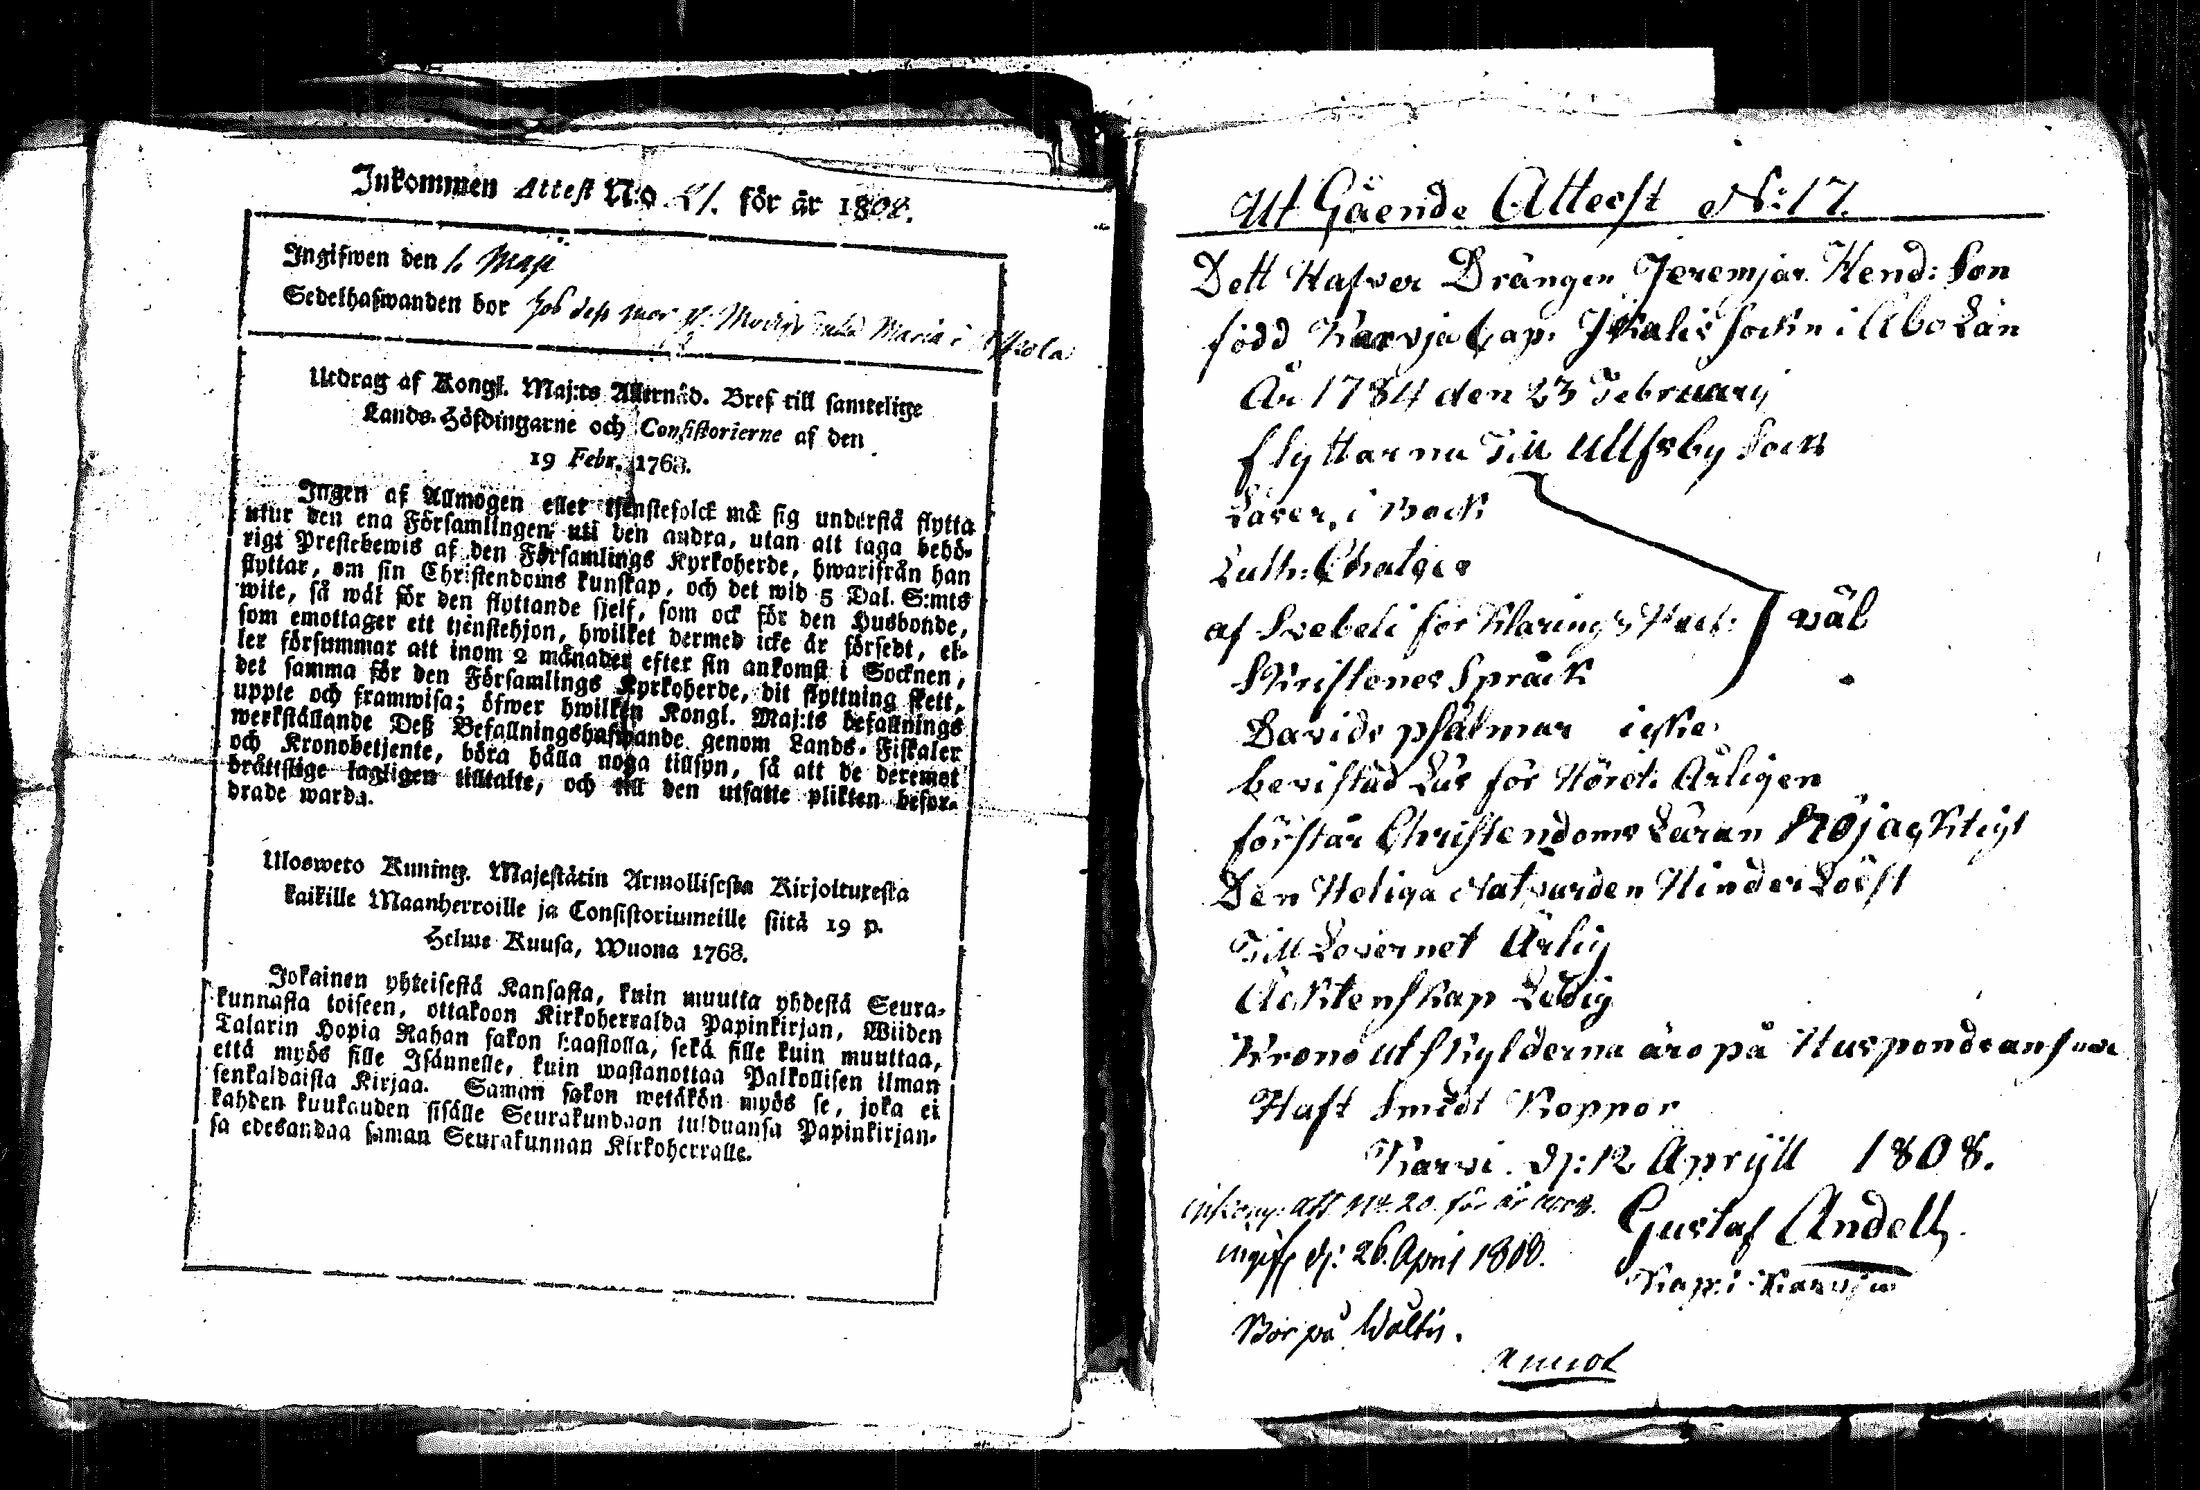 Inkommen Attest N:o 21. för år 1808.
Ingifwen den 1. Maji
Sedelhafwanden bor hos
Utdrag af Kongl. Maj:ts Allernåd. Bref till samtelige
Lands-Höfdingarne och Consistorierne af den
19 Febr. 1768.
Ingen af Allmogen eller tjenstefolck må sig understå flytta
utur den ena Församlingen uti den andra, utan att taga behö-
rigt Prestebewis af den Församlings Kyrkoherde, hwarifrån han
flyttar, om sin Christendoms kunskap, och det wid 5 Dal. S:mts
wite, så wäl för den flyttande sjelf, som ock för den Husbonde,
som emottager ett tjenstehjon, hwilket dermed icke är försedt, el-
ler försummar att inom 2 månader efter sin ankomst i Socknen,
det samma för den Församlings Kyrkoherde, dit flyttning skett,
uppte och framwisa; öfwer hwilken Kongl. Maj:ts befallnings
werkställande Deß Befallningshafwande genom Lands-Fiskaler
och Kronobetjente, böra hålla noga tillsyn, så att de deremot
bråttslige lagligen tilltalte, och till den utsatte plikten befor-
drade warda.
Ulosweto Kuning. Majestätin Armollisesta Kirjoituxesta
kaikille Maanherroille ja Consistoriumeille siitä 19 p.
Helme Kuusa, Wuona 1768.
Jokainen yhteisestä Kansasta, kuin muutta yhdestä Seura-
kunnasta toiseen, ottakoon Kirkoherralda Papinkirjan, Wiiden
Talarin Hopia Rahan sakon haastolla, sekä sille kuin muuttaa,
että myös sille Isännelle, kuin wastanottaa Palkollisen ilman
senkaldaista Kirjaa. Saman sakon wetäkön myös se, joka ei
kahden kuukauden sisälle Seurakundaan tulduansa Papinkirjan-
sa edesandaa saman Seurakunnan Kirkoherralle.
Ut Gående Atteest N:17.
Dett Hafver Drängen Jeremjas Hend: Son
född Karvja Cap. Ikalis Sockn i Åbo Län
År 1784 den 23 Februarij
flyttar nu Till Ullfsby Sock
Läser i Bock
Luth: Chatges
af Svebeli för Klarings
Skriftenes Språk
väl
Davids psälmar icke
bevistad Läs för Hörct: Årligen
förstår Christendoms Läran Nöjagktigt
Den Heliga Natvarden Hinder Löst
Till Levernet Ärlig
Äcktenskap Ledig
Krono utskylderna äro på Huspondes
Haft Smidt Koppor
Karvi. D: 12 Aprijll 1808.
Inkom: Att. N:o 20. för år 1808.
Gustaf Andell
ingiff d: 26. April 1808.
Kap: i Karvja
Bor på